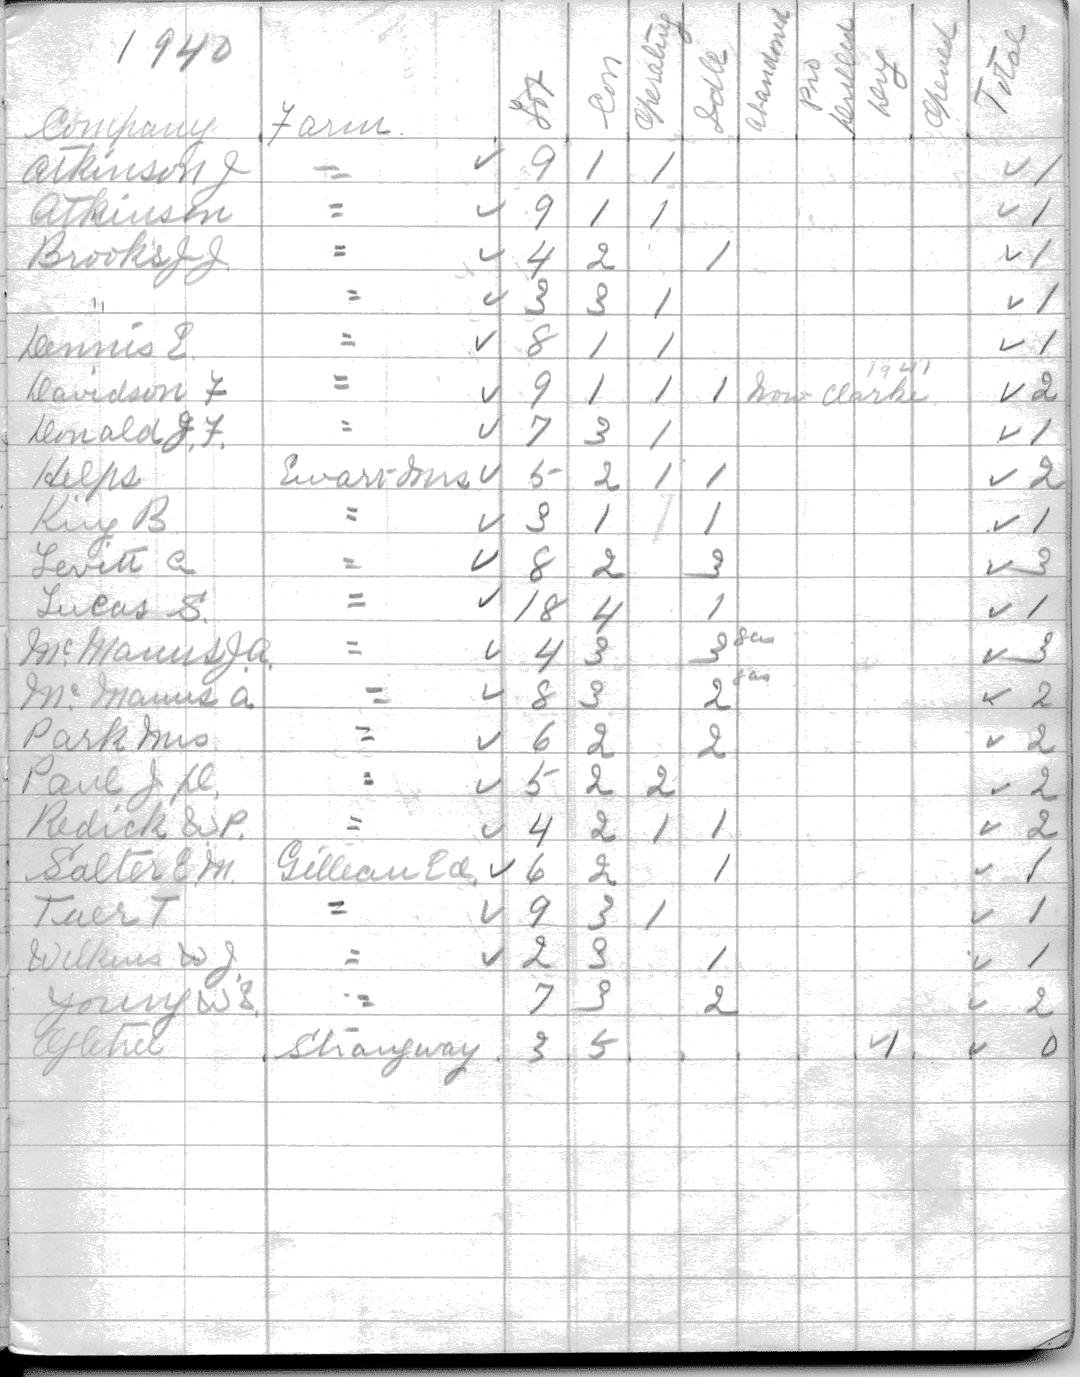 1940
Company Farm Lot Con Operating Idle Abandoned Pro Drilled Dry Opened Total
Atkinson J = ✓ 9 1 1 ✓ 1
Atkinson = ✓ 9 1 1 ✓ 1
Brooks J J = ✓ 4 2 1 ✓ 1
" = ✓ 3 3 1 ✓ 1
Dennis E. = ✓ 8 1 1 ✓ 1
Davidson F = ✓ 9 1 1 1 Now Clarke 1941 ✓ 2
Donald J. F. = ✓ 7 3 1 ✓ 1
Helps Ewart Mrs ✓ 5 2 1 1 ✓ 2
King B = ✓ 3 1 1 ✓ 1
Levitt a = ✓ 8 2 3 ✓ 3
Lucas S. = ✓ 18 4 1 ✓ 1
Mc. Manus J. a. = ✓ 4 3 3 gas ✓ 3
Mc. Manus a. = ✓ 8 3 2 gas ✓ 2
Park Mrs = ✓ 6 2 2 ✓ 2
Paul J. D. = ✓ 5 2 2 ✓ 2
Redick W. P. = ✓ 4 2 1 1 ✓ 2
Salter E. M. Gillean Ed. ✓ 6 2 1 ✓ 1
Tuer T = ✓ 9 3 1 ✓ 1
Wilkins W J. = ✓ 2 3 1 ✓ 1
Young W S. = 7 3 2 ✓ 2
Strangway 3 5 ✓ 1 ✓ 0